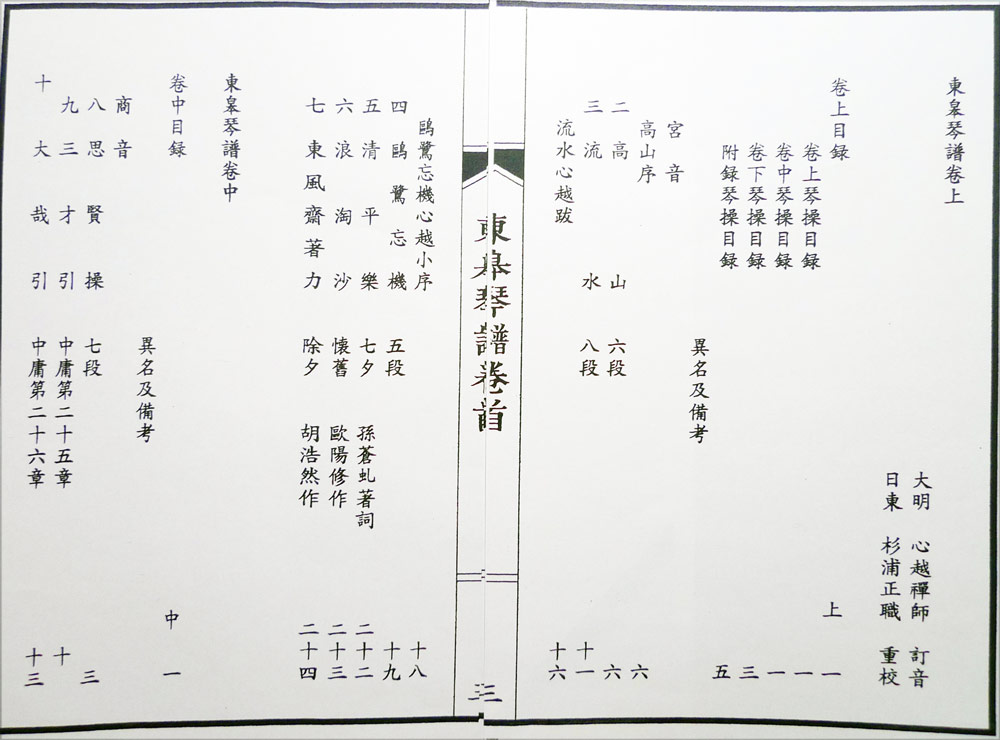 東皋琴譜卷上
大明 心越禪師 訂音
日東 杉浦正職 重校
卷上目録 上 一
卷上琴操目録 一
卷中琴操目録 一
卷下琴操目録 三
附録琴操目録 五
異名及備考
宮音
高山序 六
二 高山 六段 六
三 流水 八段 十一
流水心越跋 十六
東皋琴譜卷首 三
鷗鷺忘機心越小序 十八
四 鷗鷺忘機 五段 十九
五 清平樂 七夕 孫蒼虬著詞 二十二
六 浪淘沙 懷舊 歐陽修作 二十三
七 東風齋著力 除夕 胡浩然作 二十四
東皋琴譜卷中
卷中目録 中 一
異名及備考
商音
八 思賢操 七段 三
九 三才引 中庸第二十五章 十
十 大哉引 中庸第二十六章 十三